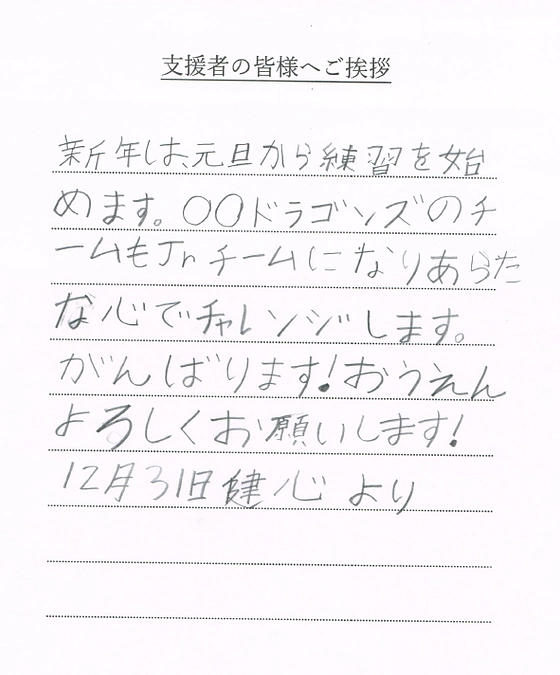 支援者の皆様へご挨拶
新年は、元旦から練習を始
めます。〇〇ドラゴンズのチ
ームもJrチームになりあらた
な心でチャレンジします。
がんばります!おうえん
よろしくお願いします!
12月31日健心より